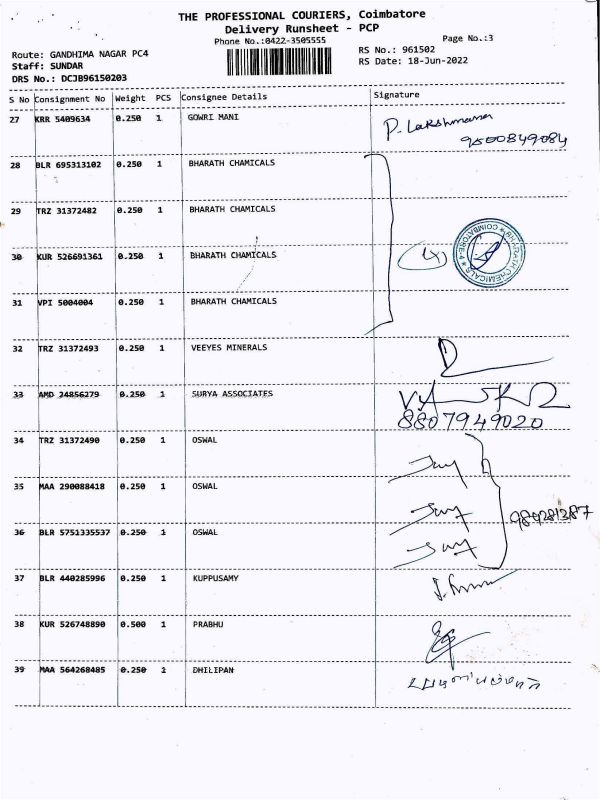 THE PROFESSIONAL COURIERS, Coimbatore
Delivery Runsheet - PCP
Phone No.:0422-3505555 Page No.:3
Route: GANDHIMA NAGAR PC4 RS No.: 961502
Staff: SUNDAR RS Date: 18-Jun-2022
DRS No.: DCJB96150203
S No Consignment No Weight PCS Consignee Details Signature
27 KRR 5409634 0.250 1 GOWRI MANI P. Lakshmana
9500849084
28 BLR 695313102 0.250 1 BHARATH CHAMICALS
29 TRZ 31372482 0.250 1 BHARATH CHAMICALS
30 KUR 526691361 0.250 1 BHARATH CHAMICALS (4) BHARATH CHEMICALS ★ COIMBATORE-4 ★
31 VPI 5004004 0.250 1 BHARATH CHAMICALS
32 TRZ 31372493 0.250 1 VEEYES MINERALS
33 AMD 24856279 0.250 1 SURYA ASSOCIATES
8807949020
34 TRZ 31372490 0.250 1 OSWAL
35 MAA 290088418 0.250 1 OSWAL
36 BLR 5751335537 0.250 1 OSWAL
37 BLR 440285996 0.250 1 KUPPUSAMY
38 KUR 526748890 0.500 1 PRABHU
39 MAA 564268485 0.250 1 DHILIPAN